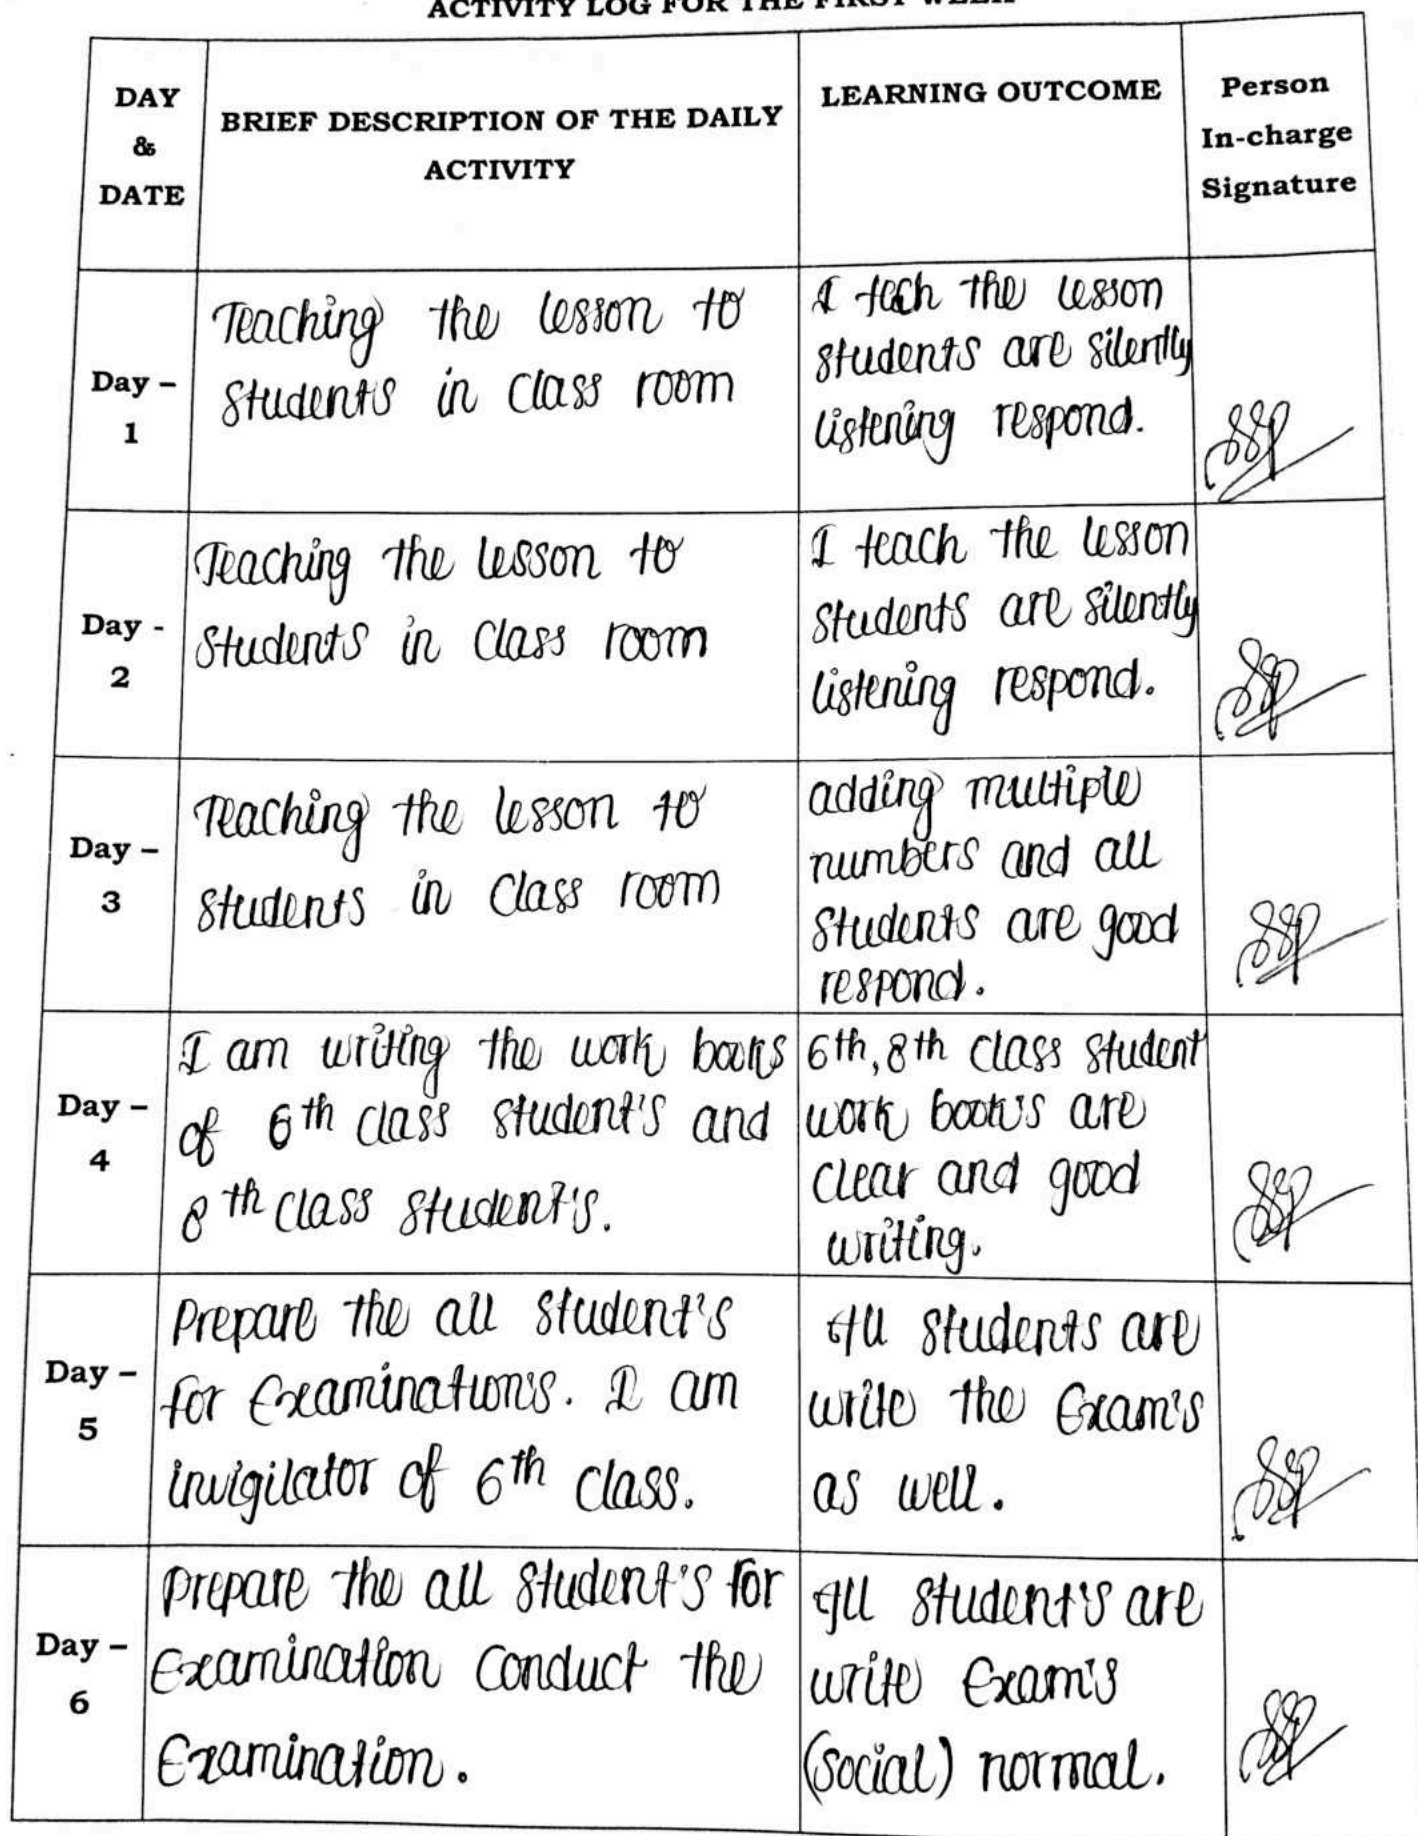 ACTIVITY LOG FOR THE FIRST WEEK
DAY
&
DATE
BRIEF DESCRIPTION OF THE DAILY
ACTIVITY
LEARNING OUTCOME
Person
In-charge
Signature
Day –
1
Teaching the lesson to
students in class room
I tech the lesson
students are silently
listening respond.
Day -
2
Teaching the lesson to
students in class room
I teach the lesson
students are silently
listening respond.
Day –
3
Teaching the lesson to
students in class room
adding multiple
numbers and all
students are good
respond.
Day –
4
I am writing the work books
of 6th class student's and
8th class student's.
6th, 8th class student
work book's are
clear and good
writing.
Day –
5
Prepare the all student's
for Examination's. I am
invigilator of 6th class.
All students are
write the Exam's
as well.
Day –
6
Prepare the all student's for
Examination conduct the
Examination.
All student's are
write Exam's
(social) normal.